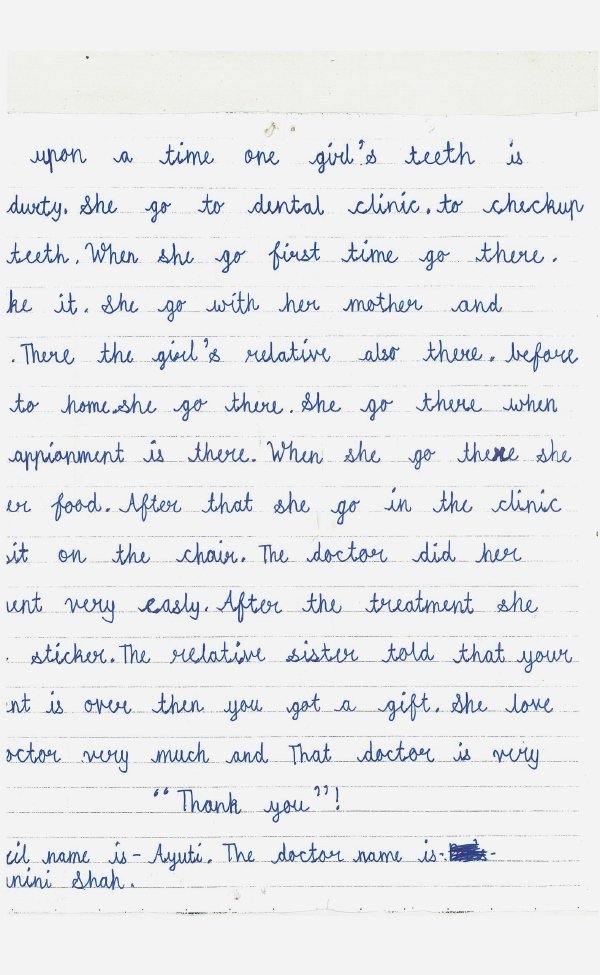 upon a time one girl's teeth is
durty. She go to dental clinic. to checkup
teeth. When she go first time go there.
ke it. She go with her mother and
. There the girl's relative also there. before
to home.she go there. She go there when
appianment is there. When she go there she
er food. After that she go in the clinic
sit on the chair. The doctor did her
ent very easly. After the treatment she
. sticker. The relative sister told that your
nt is over then you got a gift. She love
octor very much and That doctor is very
"Thank you"!
name is - Ayuti. The doctor name is- -
Shah.